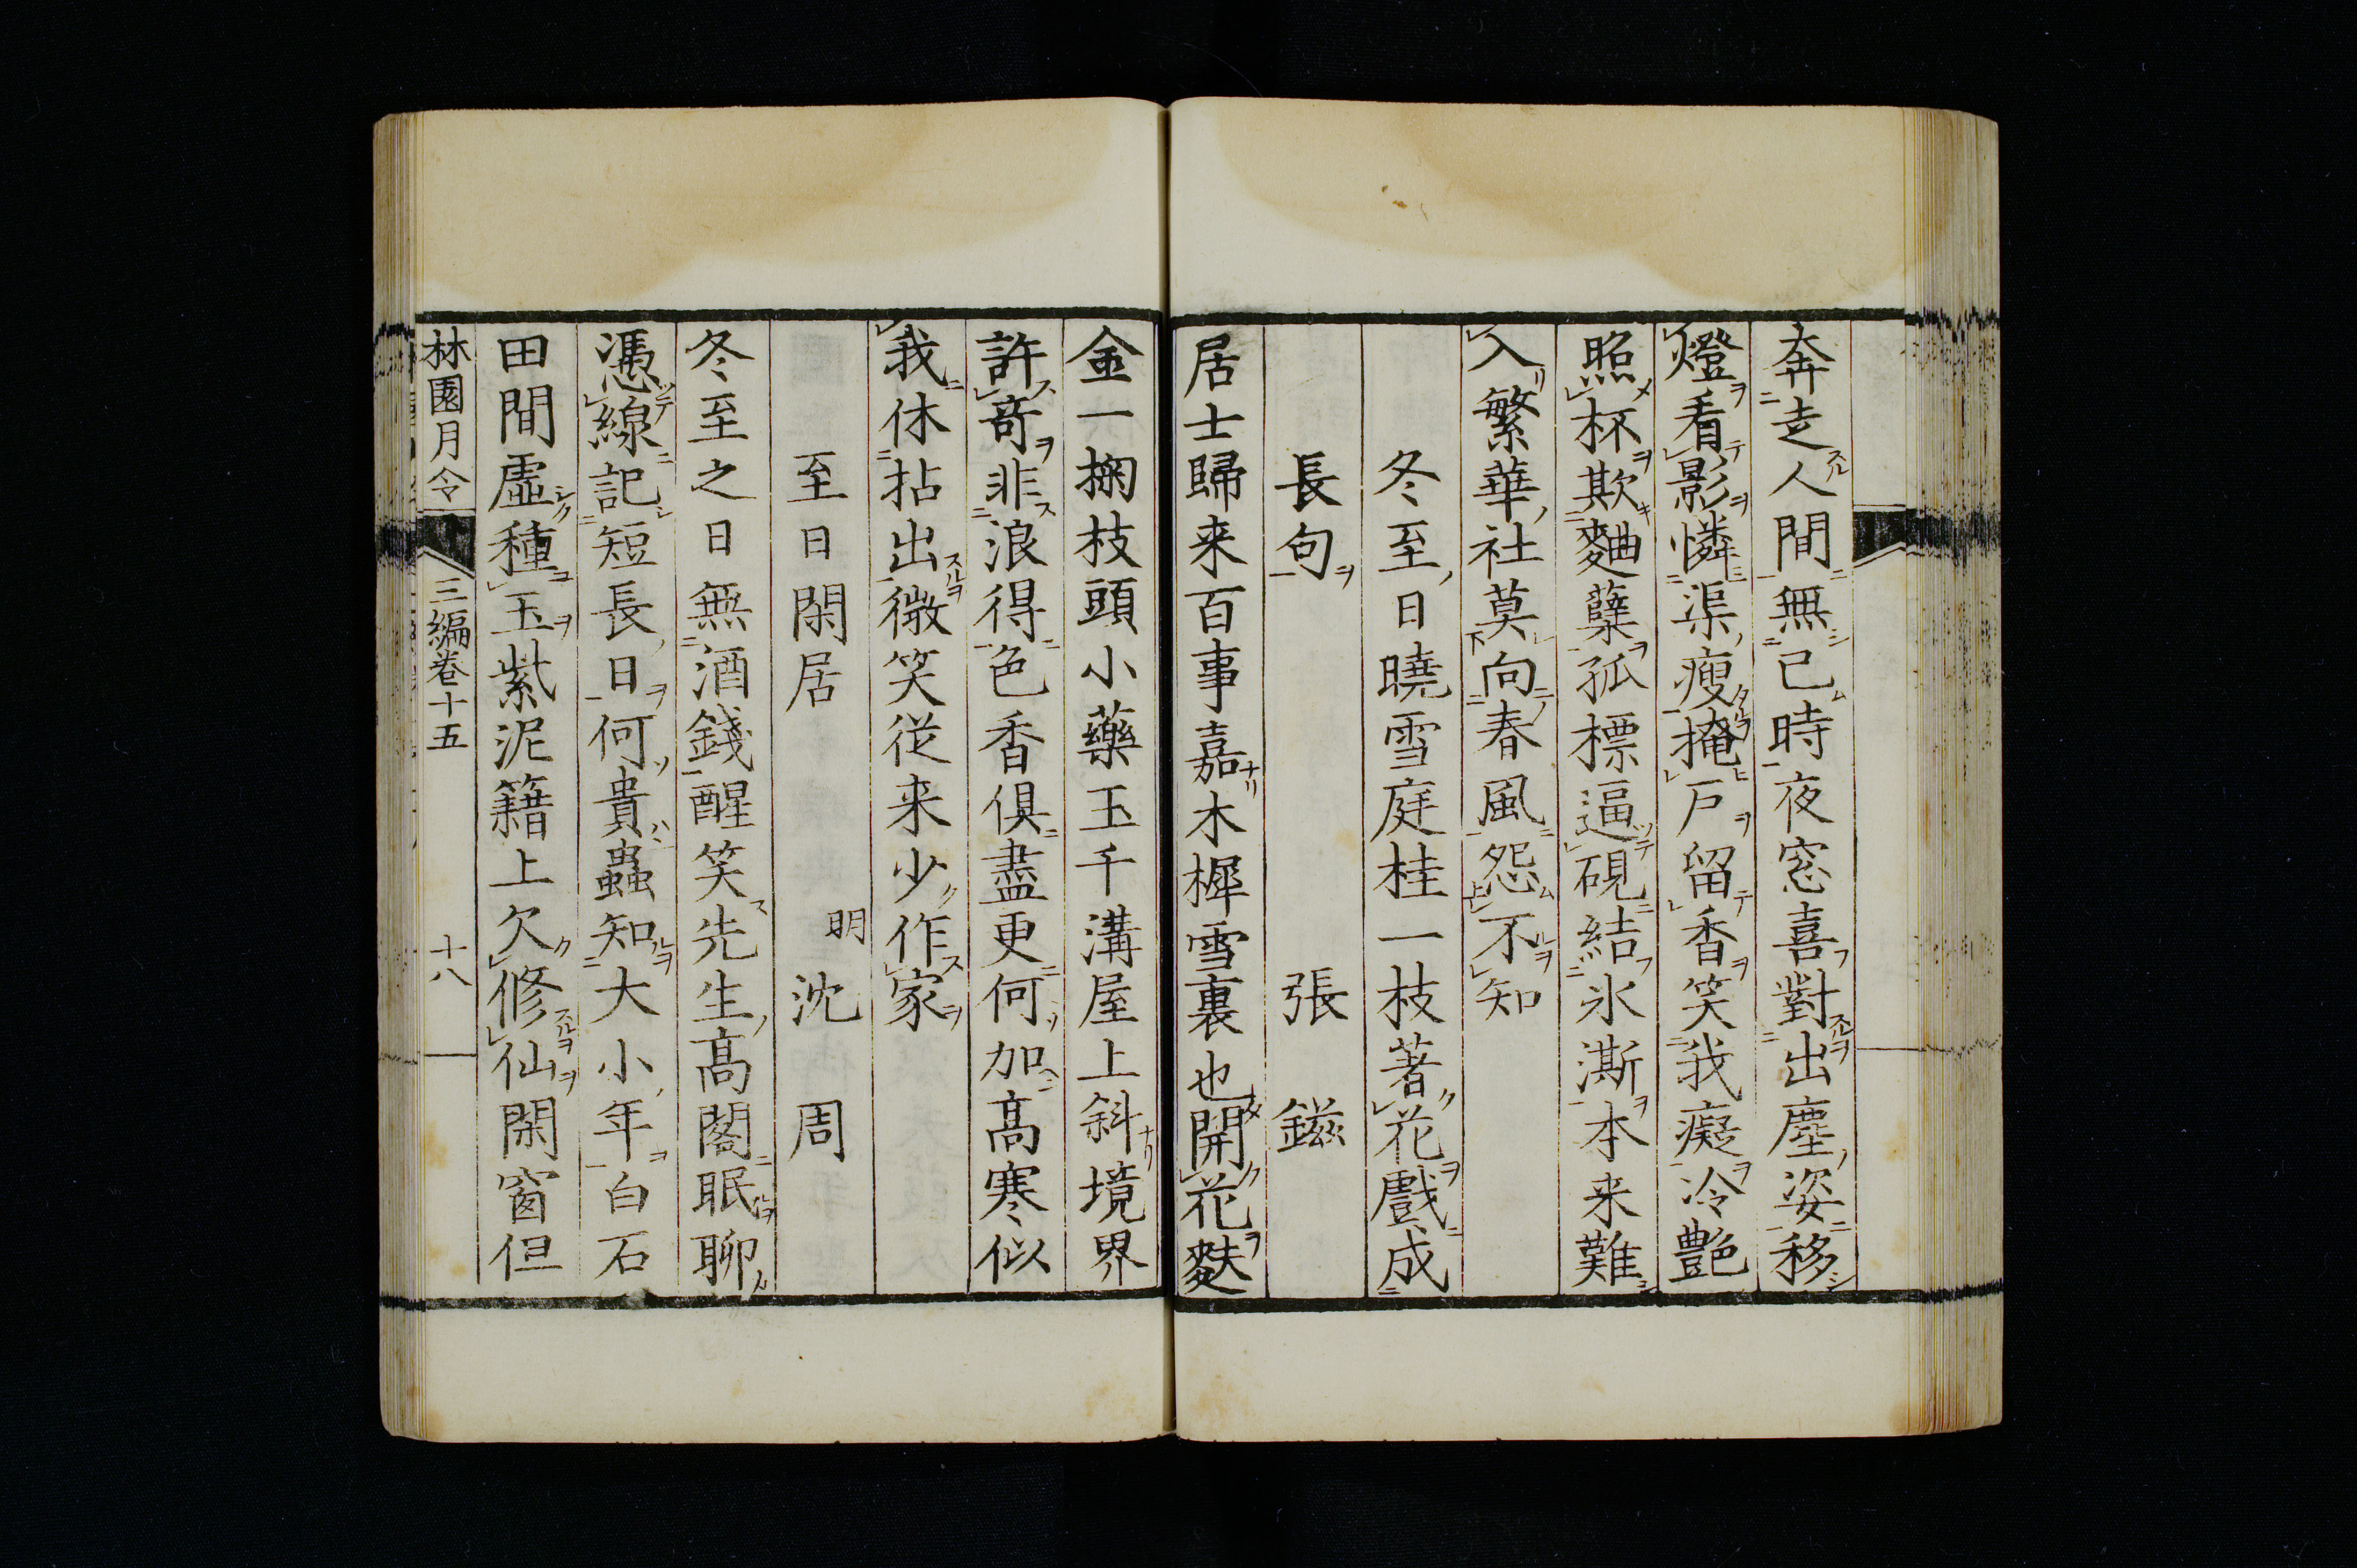 奔走人間無已時夜窓喜對出塵姿移
燈看影憐渠瘦掩戸留香笑我癡冷艶
照杯欺麹蘖孤標逼硯結氷澌本来難
入繁華社莫向春風怨不知
冬至日曉雪庭桂一枝著花戲成
長句 張 鎡
居士歸来百事嘉木樨雪裏也開花麩
金一掬枝頭小蘂玉千溝屋上斜境界
許竒非浪得色香俱盡更何加髙寒似
我休拈出微笑従来少作家
至日閑居 明 沈 周
冬至之日無酒錢醒笑先生髙閣眠聊
憑線記短長日何貴蟲知大小年白石
田間虛種玉紫泥籍上欠修仙閑窗但
林園月令 三編卷十五 十八